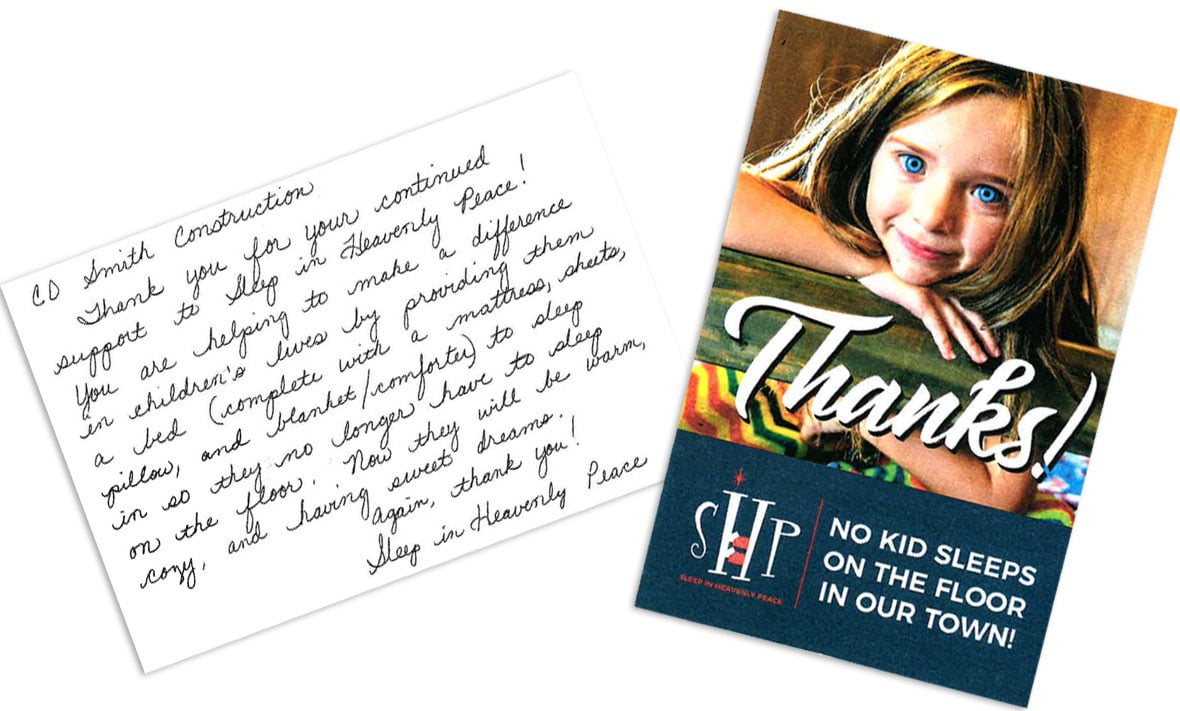 CD Smith Construction
Thank you for your continued
support to Sleep in Heavenly Peace!
You are helping to make a difference
in children's lives by providing them
a bed (complete with a mattress, sheets,
pillow, and blanket/comforter) to sleep
in so they no longer have to sleep
on the floor. Now they will be warm,
cozy, and having sweet dreams.
Again, thank you!
Sleep in Heavenly Peace
Thanks!
SHP
SLEEP IN HEAVENLY PEACE
NO KID SLEEPS
ON THE FLOOR
IN OUR TOWN!